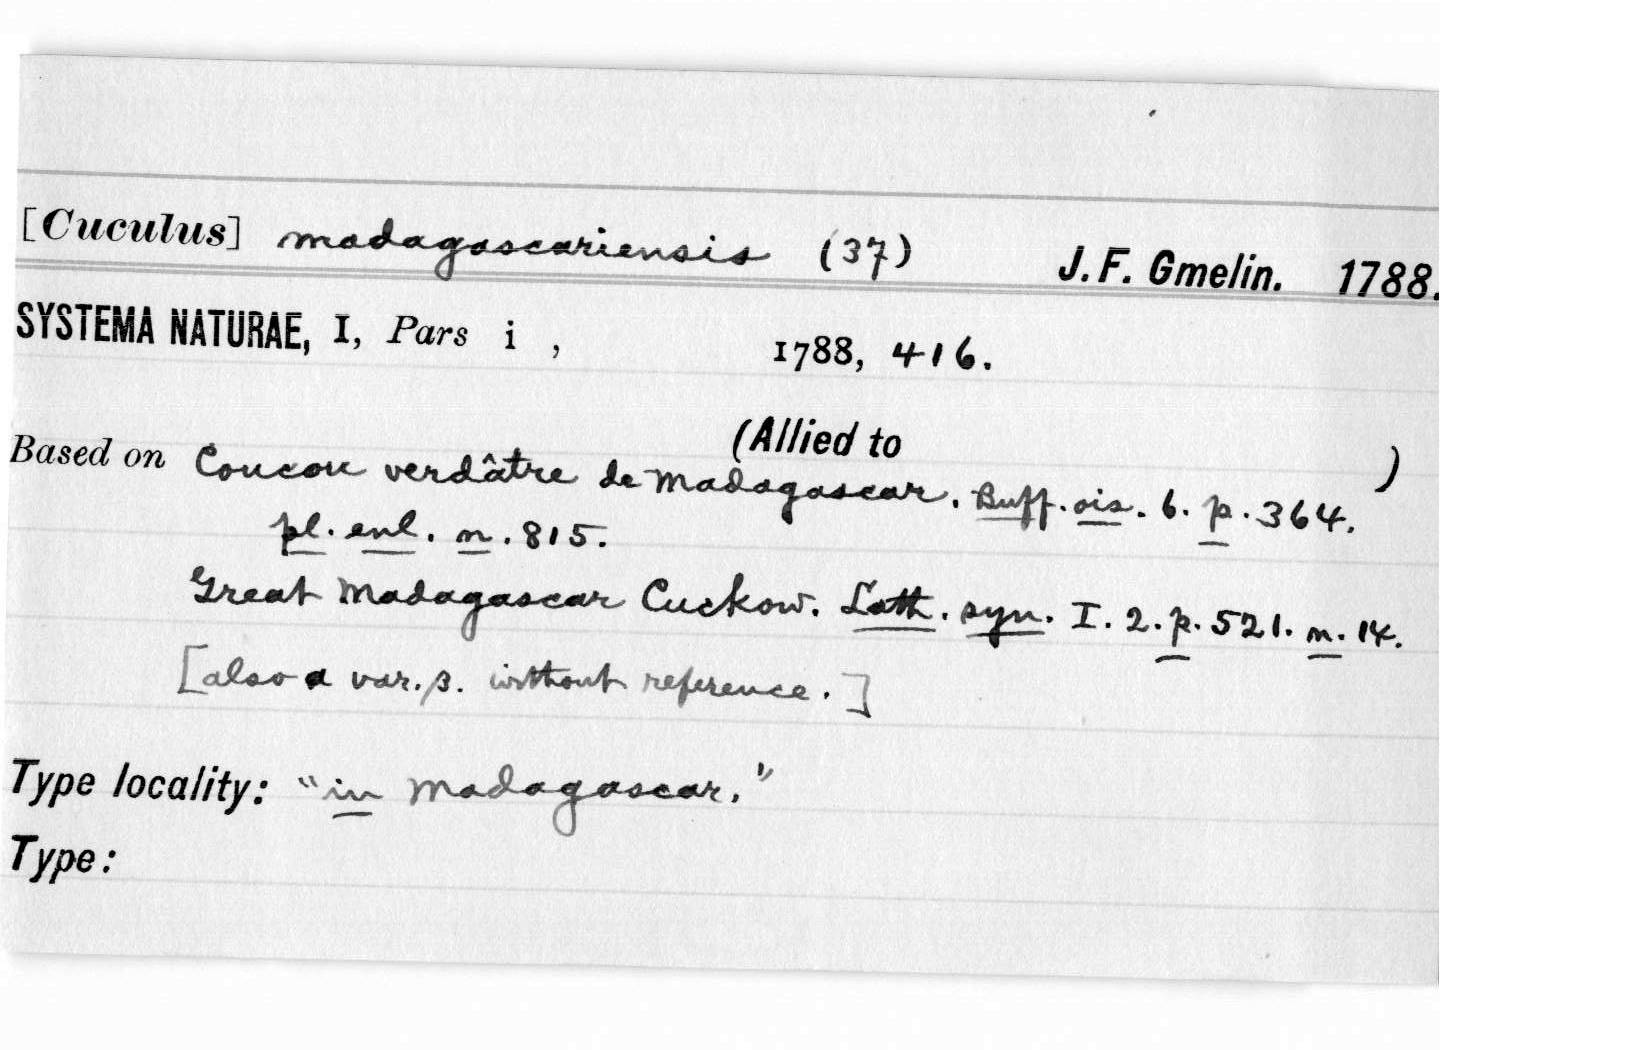 [Cuculus] madagascariensis (37) J. F. Gmelin. 1788.
SYSTEMA NATURAE, I, Pars i , 1788, 416.
(Allied to )
Based on Coucou verdâtre de Madagascar. Buff. ois. 6. p. 364.
pl. enl. n. 815.
Great Madagascar Cuckow. Lath. syn. I. 2. p. 521. n. 14.
[also a var. β. without reference.]
Type locality: "in Madagascar."
Type: